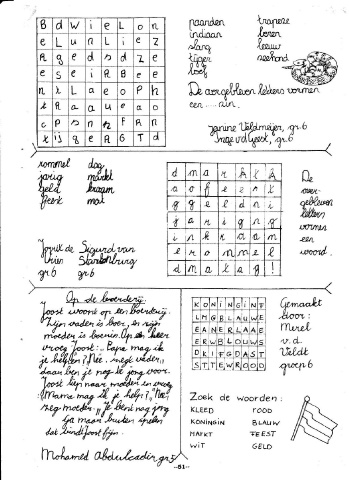 B d w i e l o n
e L u n l i e z
R g e d s d z e
e s e i R B e e
n t L a e o p h
t R a a u e a o
c p s n h f R n
t ij g e R G T d
paarden trapeze
indiaan beren
slang leeuw
tijger zeehond
loef
De overgebleven letters vormen
een ..... zin.
Janine Veldmeijer, gr.6
Inge vd Geest, gr.6
rommel dag
jarig markt
geld kraam
feest mat
Jorrit de Vries gr 6
Sigurd van Starrenburg gr 6
d m a r k t A
a o f e e s t
g g e l d n i
j a r i g n g
i n k r a a m
e r o m m e l
d m a t a g !
De
over-
gebleven
letters
vormen
een
woord.
Op de boerderij
Joost woont op een boerderij.
Zijn vader is boer, en zijn
moeder is boerin. Op een keer
vroeg Joost: Papa mag ik
je helpen? "Nee", zegt vader,
daar ben je nog te jong voor.
Joost liep naar moeder en vroeg
"Mama mag ik je helpen?" "Nee"
zeg moeder. "Je bent nog jong
ga maar buiten spelen
dat vindt Joost fijn.
Mohamed Abdulcadir gr5
K O N I N G I N F
L M G B L A U W E
E A N E R L A A E
E R W B L O U W S
D K I F G D A S T
S T T E W R O O O
Gemaakt
door:
Merel
v.d.
Veldt
groep 6
Zoek de woorden:
KLEED ROOD
KONINGIN BLAUW
MARKT FEEST
WIT GELD
--51--